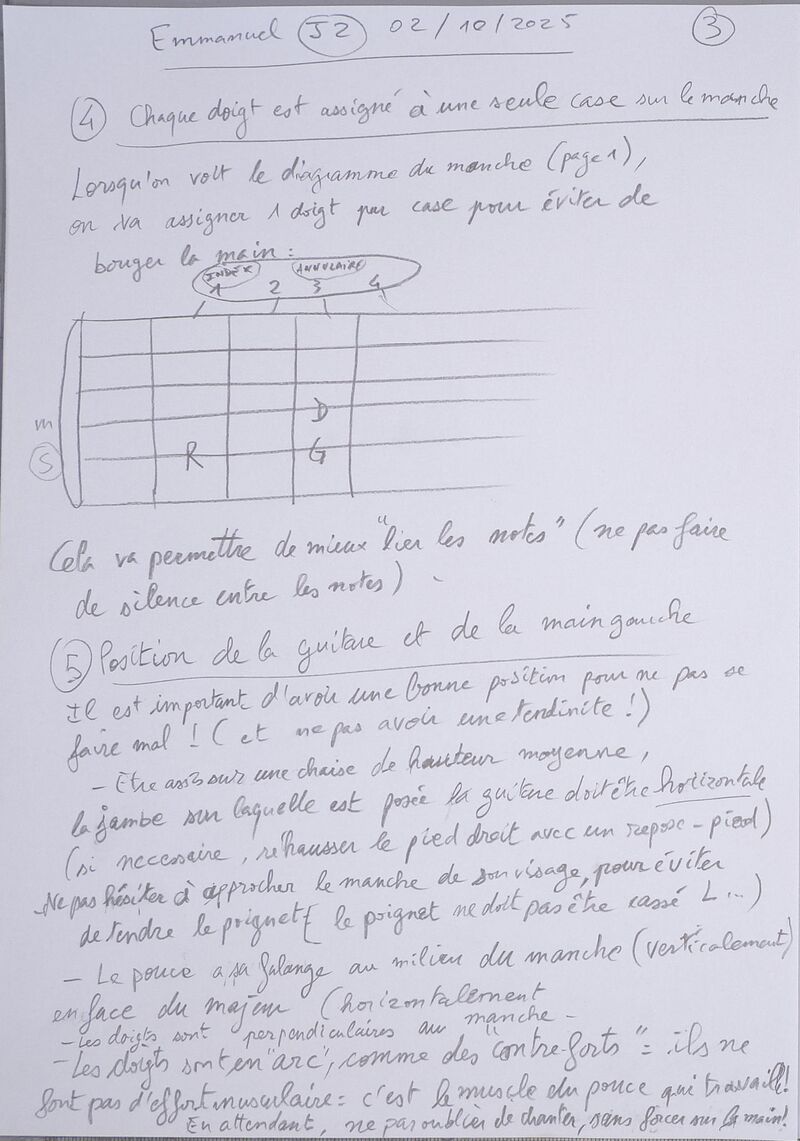 Emmanuel J2 02/10/2025 3
4 Chaque doigt est assigné à une seule case sur le manche
Lorsqu'on voit le diagramme du manche (page 1),
on va assigner 1 doigt par case pour éviter de
bouger la main :
INDEX ANNULAIRE
1 2 3 4
m D
S R G
Cela va permettre de mieux "lier les notes" (ne pas faire
de silence entre les notes).
5 Position de la guitare et de la main gauche
Il est important d'avoir une bonne position pour ne pas se
faire mal ! (et ne pas avoir une tendinite !)
- Etre assis sur une chaise de hauteur moyenne,
la jambe sur laquelle est posée la guitare doit être horizontale
(si necessaire, réhausser le pied droit avec un repose-pied)
- Ne pas hésiter à approcher le manche de son visage, pour éviter
de tendre le poignet (le poignet ne doit pas être cassé L...)
- Le pouce a sa falange au milieu du manche (verticalement)
en face du majeur (horizontalement
- Les doigts sont perpendiculaires au manche -
- Les doigts sont en "arc", comme des "contre-forts" = ils ne
font pas d'effort musculaire = c'est le muscle du pouce qui travaille !
En attendant, ne pas oublier de chanter, sans forcer sur la main !